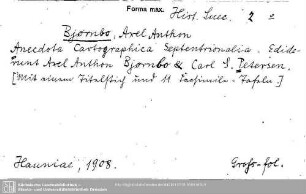 Forms max.
Hist. Suec. 2 e
Björnbo, Axel Anthon
Anecdota Cartographica Septentrionalia. Edide-
runt Axel Anthon Björnbo & Carl S. Petersen.
[Mit einem Titelstich und 11 Facsimile-Tafeln.]
Hauniae, 1908. Groß-fol.